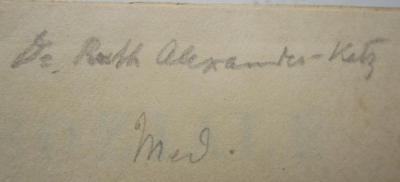 Dr. Ruth Alexander-Katz
Med.